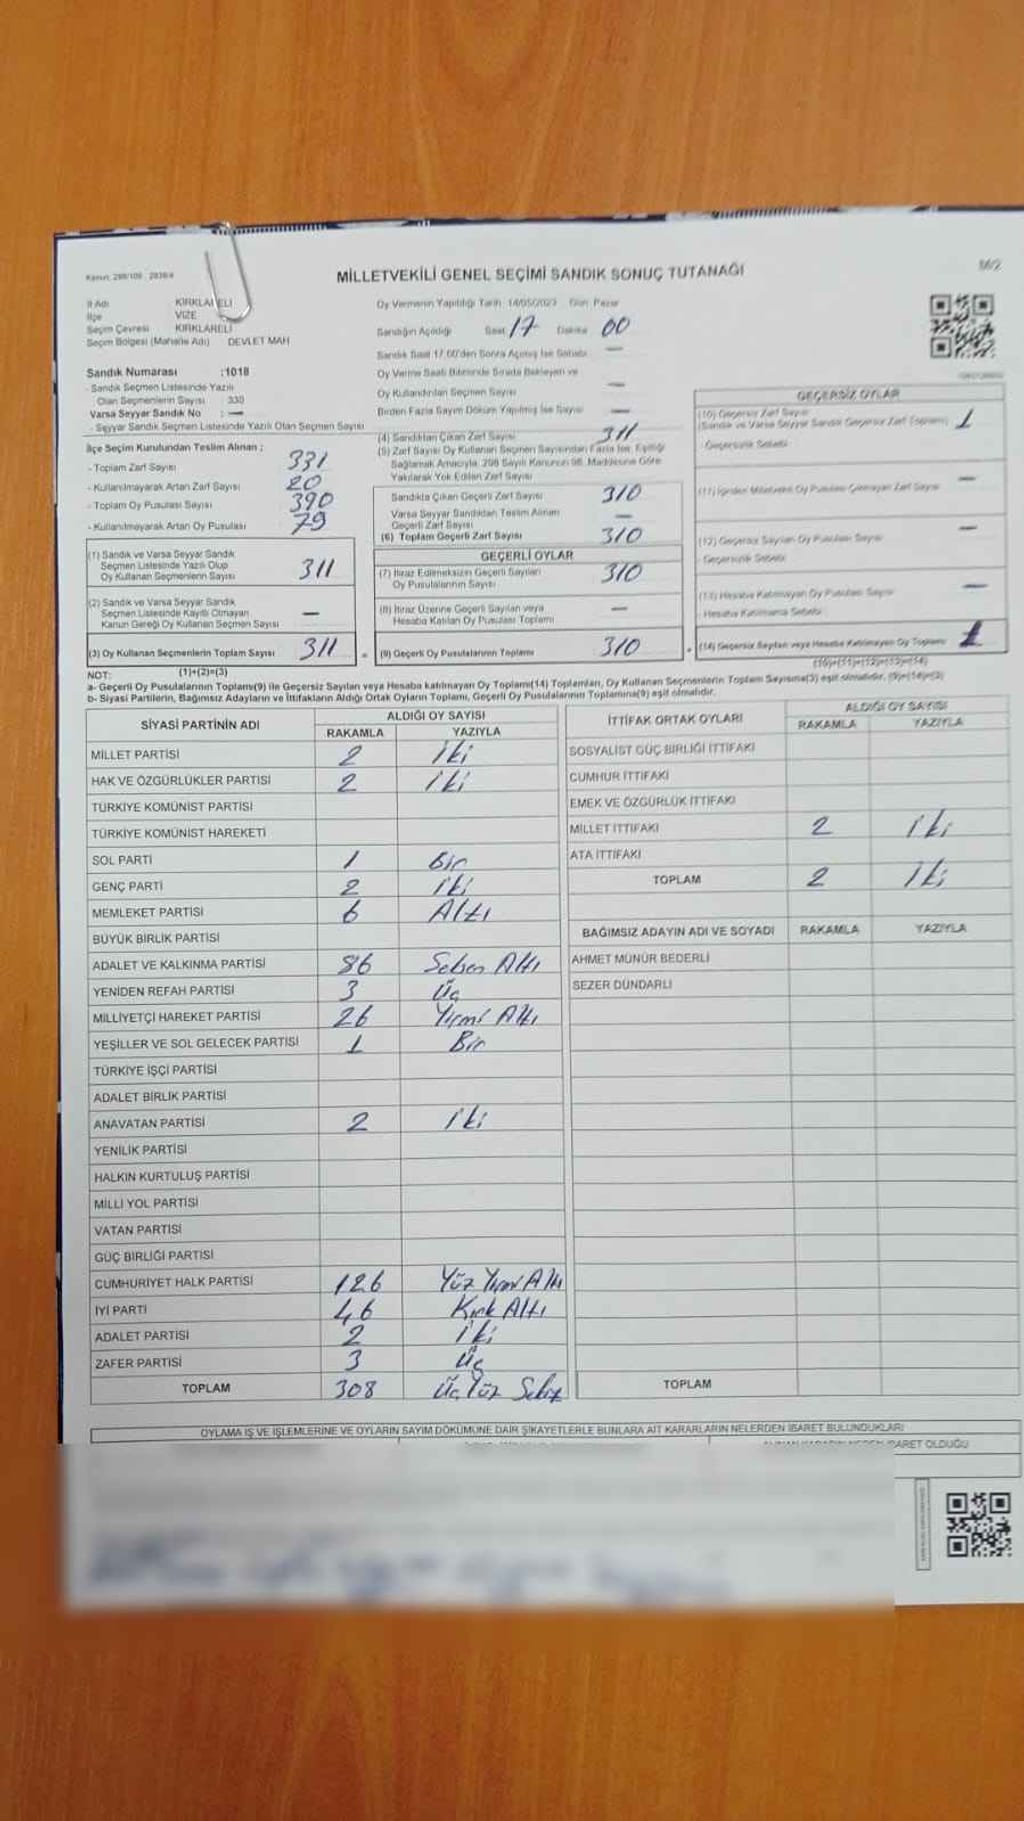 MİLLETVEKİLİ GENEL SEÇİMİ SANDIK SONUÇ TUTANAĞI
İl Adı KIRKLARELİ
İlçe VİZE
Seçim Çevresi KIRKLARELİ
Seçim Bölgesi (Mahalle Adı) DEVLET MAH
Sandık Numarası :1018
- Sandık Seçmen Listesinde Yazılı
Olan Seçmenlerin Sayısı 330
Varsa Seyyar Sandık No : —
- Seyyar Sandık Seçmen Listesinde Yazılı Olan Seçmen Sayısı
İlçe Seçim Kurulundan Teslim Alınan ;
- Toplam Zarf Sayısı 331
- Kullanılmayarak Artan Zarf Sayısı 20
- Toplam Oy Pusulası Sayısı 390
- Kullanılmayarak Artan Oy Pusulası 79
(1) Sandık ve Varsa Seyyar Sandık
Seçmen Listesinde Yazılı Olup
Oy Kullanan Seçmenlerin Sayısı 311
(2) Sandık ve Varsa Seyyar Sandık
Seçmen Listesinde Kayıtlı Olmayan
Kanun Gereği Oy Kullanan Seçmen Sayısı —
(3) Oy Kullanan Seçmenlerin Toplam Sayısı 311
(1)+(2)=(3)
Oy Vermenin Yapıldığı Tarih 14/05/2023 Gün Pazar
Sandığın Açıldığı Saat 17 Dakika 00
Sandık Saat 17:00'den Sonra Açılmış İse Sebebi —
Oy Verme Saati Bitiminde Sırada Bekleyen ve
Oy Kullandırılan Seçmen Sayısı —
Birden Fazla Sayım Döküm Yapılmış İse Sayısı —
(4) Sandıktan Çıkan Zarf Sayısı 311
(5) Zarf Sayısı Oy Kullanan Seçmen Sayısından Fazla İse, Eşitliği
Sağlamak Amacıyla, 298 Sayılı Kanunun 98. Maddesine Göre
Yakılarak Yok Edilen Zarf Sayısı
Sandıkta Çıkan Geçerli Zarf Sayısı 310
Varsa Seyyar Sandıktan Teslim Alınan
Geçerli Zarf Sayısı —
(6) Toplam Geçerli Zarf Sayısı 310
GEÇERLİ OYLAR
(7) İtiraz Edilmeksizin Geçerli Sayılan
Oy Pusulalarının Sayısı 310
(8) İtiraz Üzerine Geçerli Sayılan veya
Hesaba Katılan Oy Pusulası Toplamı —
(9) Geçerli Oy Pusulalarının Toplamı 310
GEÇERSİZ OYLAR
(10) Geçersiz Zarf Sayısı 1
(Sandık ve Varsa Seyyar Sandık Geçersiz Zarf Toplamı)
Geçersizlik Sebebi
(11) İçinden Milletvekili Oy Pusulası Çıkmayan Zarf Sayısı —
(12) Geçersiz Sayılan Oy Pusulası Sayısı —
- Geçersizlik Sebebi
(13) Hesaba Katılmayan Oy Pusulası Sayısı —
- Hesaba Katılmama Sebebi
(14) Geçersiz Sayılan veya Hesaba Katılmayan Oy Toplamı 1
(10)+(11)+(12)+(13)=(14)
NOT:
a- Geçerli Oy Pusulalarının Toplamı(9) ile Geçersiz Sayılan veya Hesaba katılmayan Oy Toplamı(14) Toplamları, Oy Kullanan Seçmenlerin Toplam Sayısına(3) eşit olmalıdır. (9)+(14)=(3)
b- Siyasi Partilerin, Bağımsız Adayların ve İttifakların Aldığı Ortak Oyların Toplamı, Geçerli Oy Pusulalarının Toplamına(9) eşit olmalıdır.
SİYASİ PARTİNİN ADI ALDIĞI OY SAYISI
RAKAMLA YAZIYLA
MİLLET PARTİSİ 2 iki
HAK VE ÖZGÜRLÜKLER PARTİSİ 2 iki
TÜRKİYE KOMÜNİST PARTİSİ
TÜRKİYE KOMÜNİST HAREKETİ
SOL PARTİ 1 Bir
GENÇ PARTİ 2 iki
MEMLEKET PARTİSİ 6 Altı
BÜYÜK BİRLİK PARTİSİ
ADALET VE KALKINMA PARTİSİ 86 Seksen Altı
YENİDEN REFAH PARTİSİ 3 Üç
MİLLİYETÇİ HAREKET PARTİSİ 26 Yirmi Altı
YEŞİLLER VE SOL GELECEK PARTİSİ 1 Bir
TÜRKİYE İŞÇİ PARTİSİ
ADALET BİRLİK PARTİSİ
ANAVATAN PARTİSİ 2 iki
YENİLİK PARTİSİ
HALKIN KURTULUŞ PARTİSİ
MİLLİ YOL PARTİSİ
VATAN PARTİSİ
GÜÇ BİRLİĞİ PARTİSİ
CUMHURİYET HALK PARTİSİ 126 Yüz Yirmi Altı
İYİ PARTİ 46 Kırk Altı
ADALET PARTİSİ 2 iki
ZAFER PARTİSİ 3 Üç
TOPLAM 308 Üç Yüz Sekiz
İTTİFAK ORTAK OYLARI ALDIĞI OY SAYISI
RAKAMLA YAZIYLA
SOSYALİST GÜÇ BİRLİĞİ İTTİFAKI
CUMHUR İTTİFAKI
EMEK VE ÖZGÜRLÜK İTTİFAKI
MİLLET İTTİFAKI 2 iki
ATA İTTİFAKI
TOPLAM 2 iki
BAĞIMSIZ ADAYIN ADI VE SOYADI RAKAMLA YAZIYLA
AHMET MÜNÜR BEDERLİ
SEZER DUNDARLI
TOPLAM
OYLAMA İŞ VE İŞLEMLERİNE VE OYLARIN SAYIM DÖKÜMÜNE DAİR ŞİKAYETLERLE BUNLARA AİT KARARLARIN NELERDEN İBARET BULUNDUKLARI